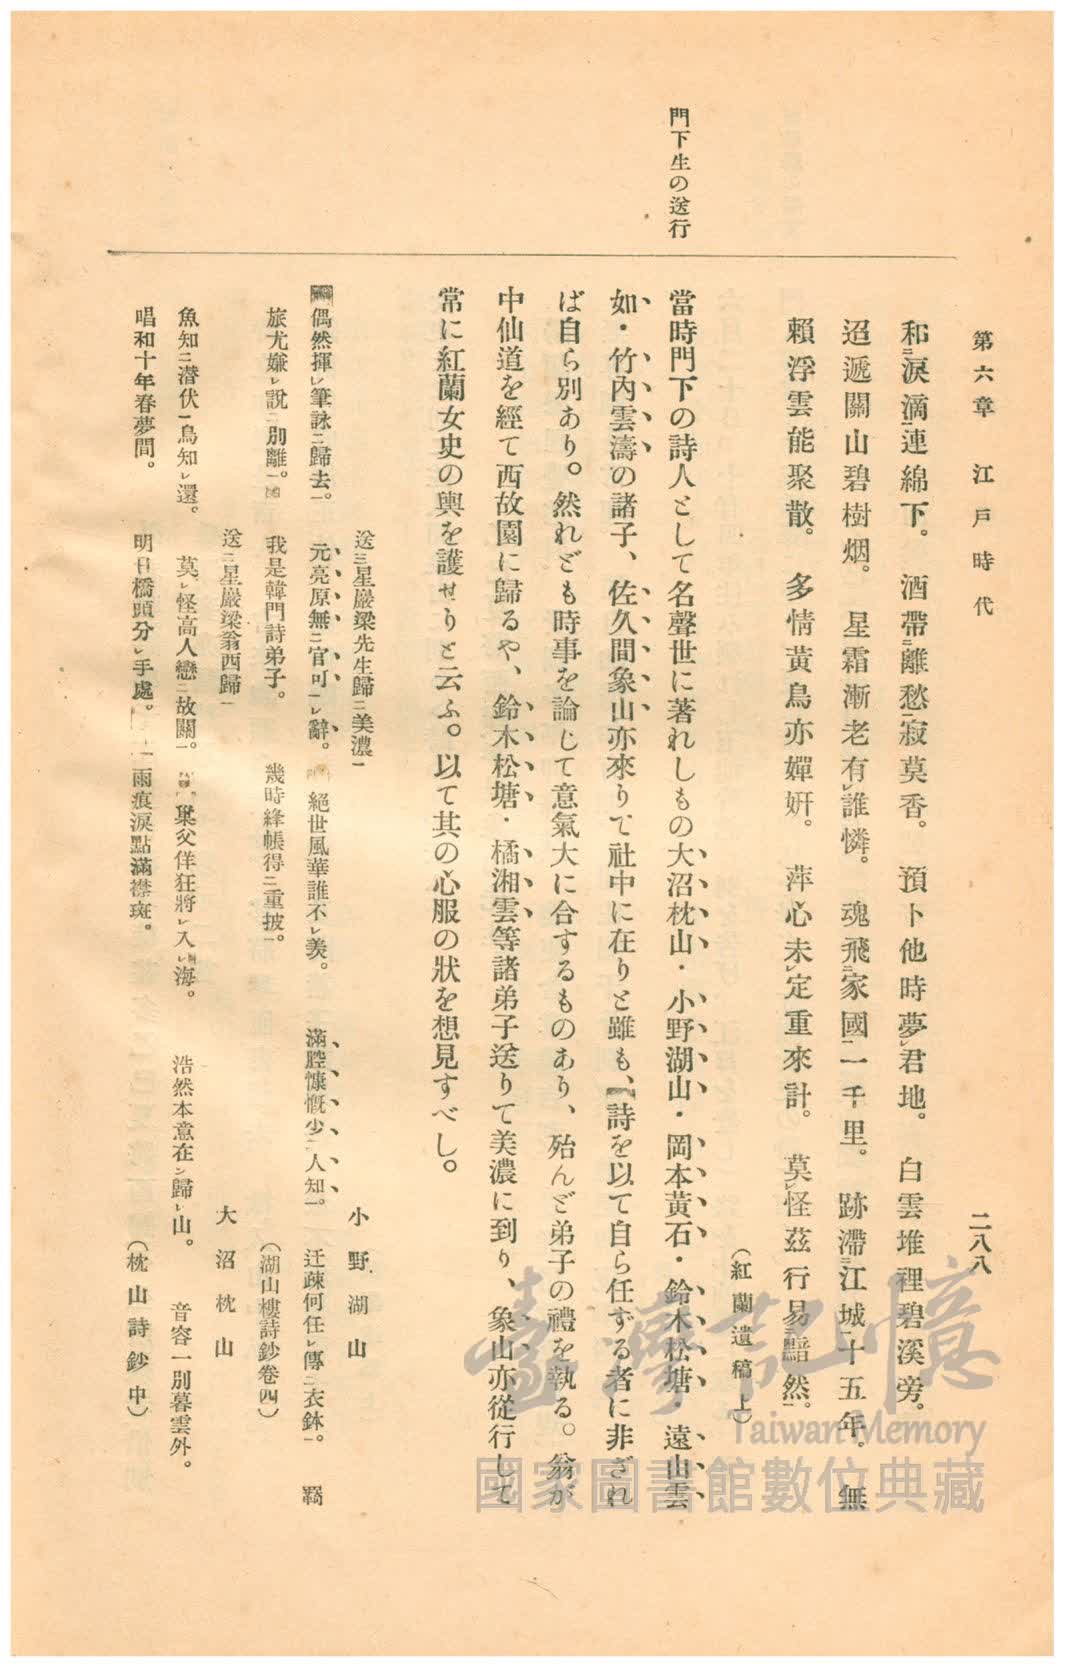 第六章　江戸時代
二八八
門下生の送行
和㆓淚滴㆒連綿下。　酒帶㆓離愁㆒寂莫香。　預卜他時夢㆑君地。　白雲堆裡碧溪旁。
迢遞關山碧樹烟。　星霜漸老有㆑誰憐。　魂飛㆓家國㆒一千里。　跡滯㆓江城㆒十五年。　無
賴浮雲能聚散。　多情黃鳥亦嬋姸。　萍心未㆑定重來計。　莫㆑怪茲行易㆓黯然㆒。
（紅蘭遺稿上）
當時門下の詩人として名聲世に著れしもの大沼枕山・小野湖山・岡本黃石・鈴木松塘・遠山雲
如・竹內雲濤の諸子、佐久間象山亦來りて社中に在りと雖も、詩を以て自ら任ずる者に非ざれ
ば自ら別あり。然れども時事を論じて意氣大に合するものあり、殆んど弟子の禮を執る。翁が
中仙道を經て西故園に歸るや、鈴木松塘・橘湘雲等諸弟子送りて美濃に到り、象山亦從行して
常に紅蘭女史の輿を護せりと云ふ。以て其の心服の狀を想見すべし。
送㆔星巖梁先生歸㆓美濃㆒
小野湖山
偶然揮㆑筆詠㆓歸去㆒。　元亮原無㆓官可㆒㆑辭。　絕世風華誰不㆑羨。　滿腔慷慨少㆓人知㆒。　迂疎何任㆑傳㆓衣鉢㆒。　羇
旅尤嫌㆑說㆓別離㆒。　我是韓門詩弟子。　幾時絳帳得㆓重披㆒。
（湖山樓詩鈔卷四）
送㆓星巖梁翁西歸㆒
大沼枕山
魚知㆓潜伏㆒鳥知㆑還。　莫㆑怪高人戀㆓故關㆒。　巢父佯狂將㆑入㆑海。　浩然本意在㆑歸㆑山。　音容一別暮雲外。
唱和十年春夢間。　明日橋頭分㆑手處。　雨痕淚點滿襟斑。
（枕山詩鈔中）
臺灣記憶
Taiwan Memory
國家圖書館數位典藏